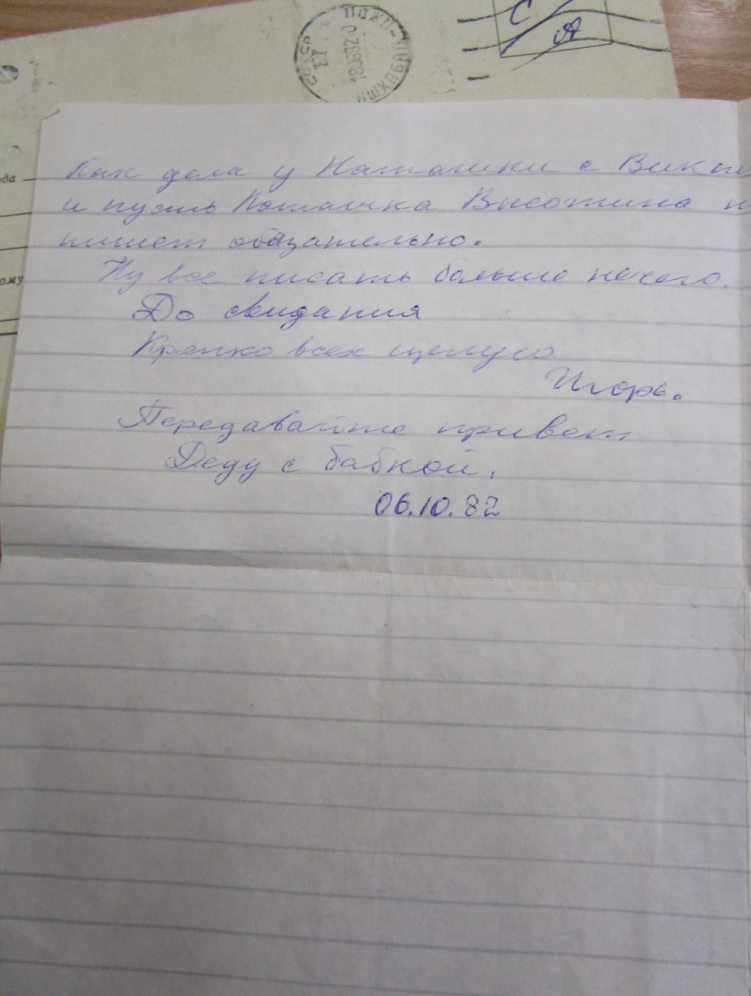 С
А
ода
ому
Как дела у Наташки с
и пусть Наташка
пишет обязательно.
Ну все писать больше нечего.
До свидания
Крепко всех целую
Игорь.
Передавайте привет
Деду с бабкой.
06.10.82